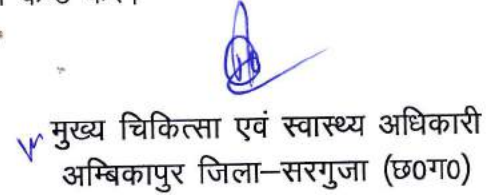 मुख्य चिकित्सा एवं स्वास्थ्य अधिकारी
अम्बिकापुर जिला–सरगुजा (छ0ग0)